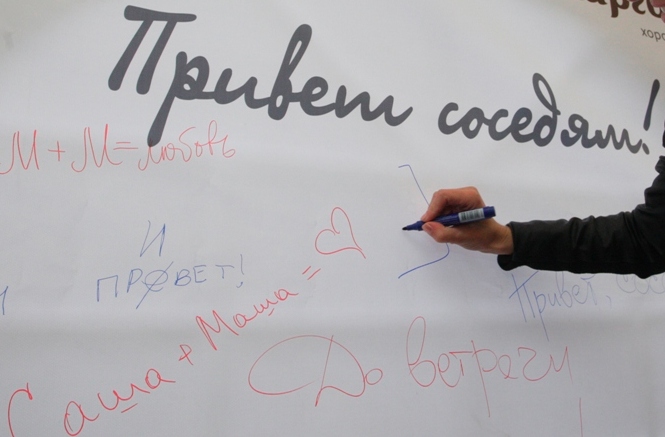 хоро
Привет соседям!
М + М = любовь
И
ПРОВЕТ!
Саша + Маша = ♡
Привет, сос
До ветрачи